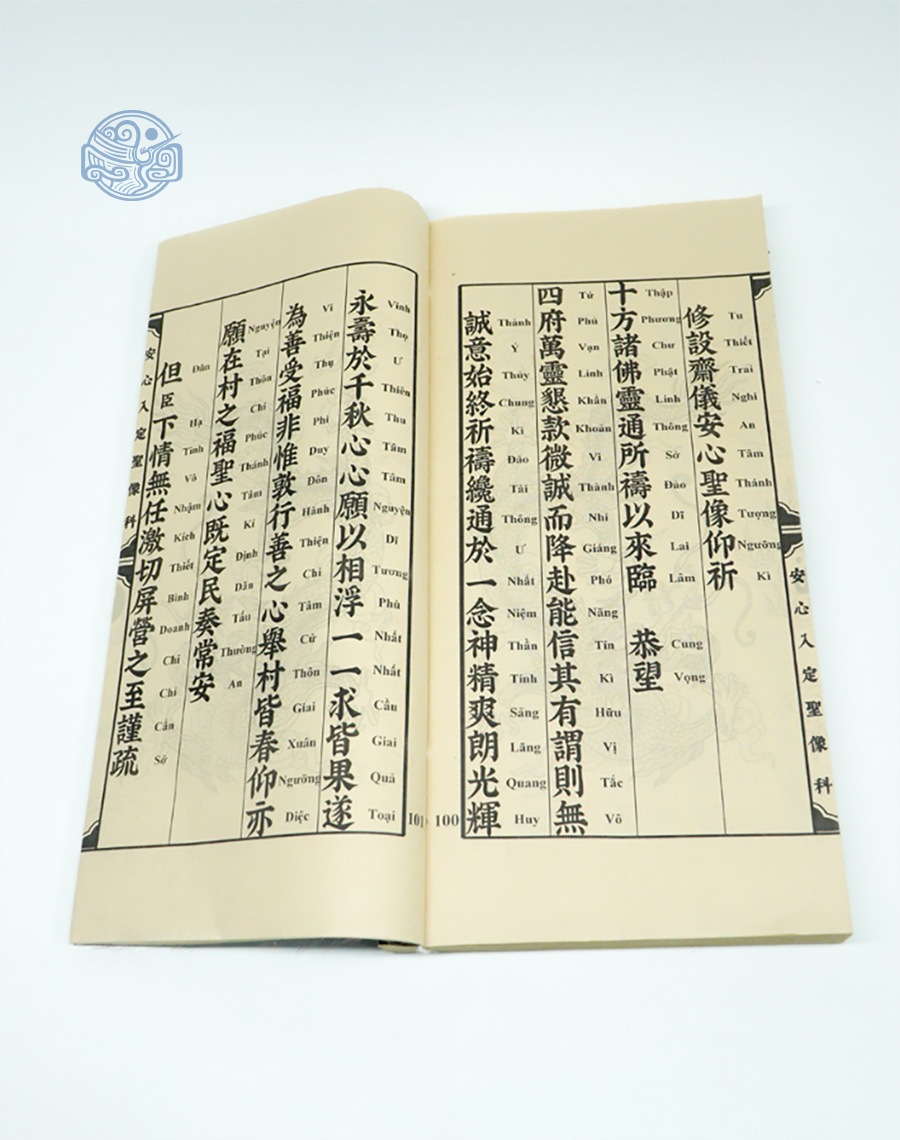 安心入定聖像科
修設齋儀安心聖像仰祈
Tu Thiết Trai Nghi An Tâm Thánh Tượng Ngưỡng Kì
十方諸佛靈通所禱以來臨 恭望
Thập Phương Chư Phật Linh Thông Sở Đảo Dĩ Lai Lâm Cung Vọng
四府萬靈懇款微誠而降赴能信其有謂則無
Tứ Phủ Vạn Linh Khẩn Khoản Vi Thành Nhi Giáng Phó Năng Tín Kì Hữu Vị Tắc Vô
誠意始終祈禱纔通於一念神精爽朗光輝
Thành Ý Thủy Chung Kì Đảo Tài Thông Ư Nhất Niệm Thần Tinh Sảng Lãng Quang Huy
100
101
永壽於千秋心心願以相浮一一求皆果遂
Vĩnh Thọ Ư Thiên Thu Tâm Tâm Nguyện Dĩ Tương Phù Nhất Nhất Cầu Giai Quả Toại
為善受福非惟敦行善之心舉村皆春仰亦
Vi Thiện Thụ Phúc Phi Duy Đôn Hành Thiện Chi Tâm Cử Thôn Giai Xuân Ngưỡng Diệc
願在村之福聖心既定民奏常安
Nguyện Tại Thôn Chi Phúc Thánh Tâm Kí Định Dân Tấu Thường An
但臣下情無任激切屏營之至謹疏
Đãn Hạ Tình Vô Nhậm Kích Thiết Bình Doanh Chi Chí Cẩn Sớ
安心入定聖像科